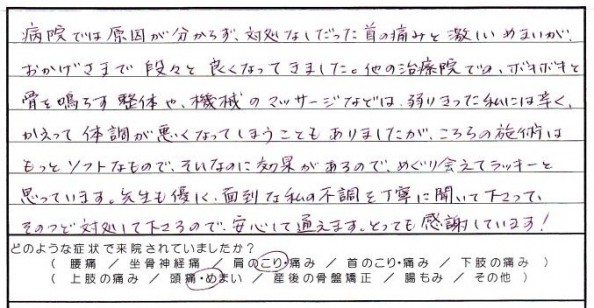 病院では原因が分からず、対処なしだった首の痛みと激しいめまいが、
おかげさまで段々と良くなってきました。他の治療院では、ボキボキと
骨を鳴らす整体や、機械のマッサージなどは、弱りきった私には辛く、
かえって体調が悪くなってしまうこともありましたが、こちらの施術は
もっとソフトなもので、それなのに効果があるので、めぐり会えてラッキーと
思っています。先生も優しく、面倒な私の不調を丁寧に聞いて下さって、
そのつど対処して下さるので、安心して通えます。とっても感謝しています!
どのような症状で来院されていましたか?
( 腰痛 / 坐骨神経痛 / 肩のこり・痛み / 首のこり・痛み / 下肢の痛み )
( 上肢の痛み / 頭痛・めまい / 産後の骨盤矯正 / 腸もみ / その他 )